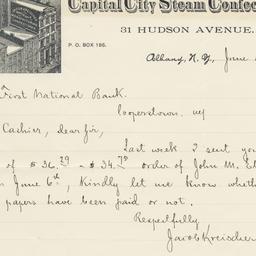 Capital City Steam Confec
31 HUDSON AVENUE.
P. O. BOX 186.
Albany, N. Y., June
First National Bank.
Cooperstown, NY
Cashier, dear sir,
Last week I sent you
of $36.29 - $34.75 order of John M.
June 6th, Kindly let me know wheth
papers have been paid or not.
Respectfully
Jacob Kreischer